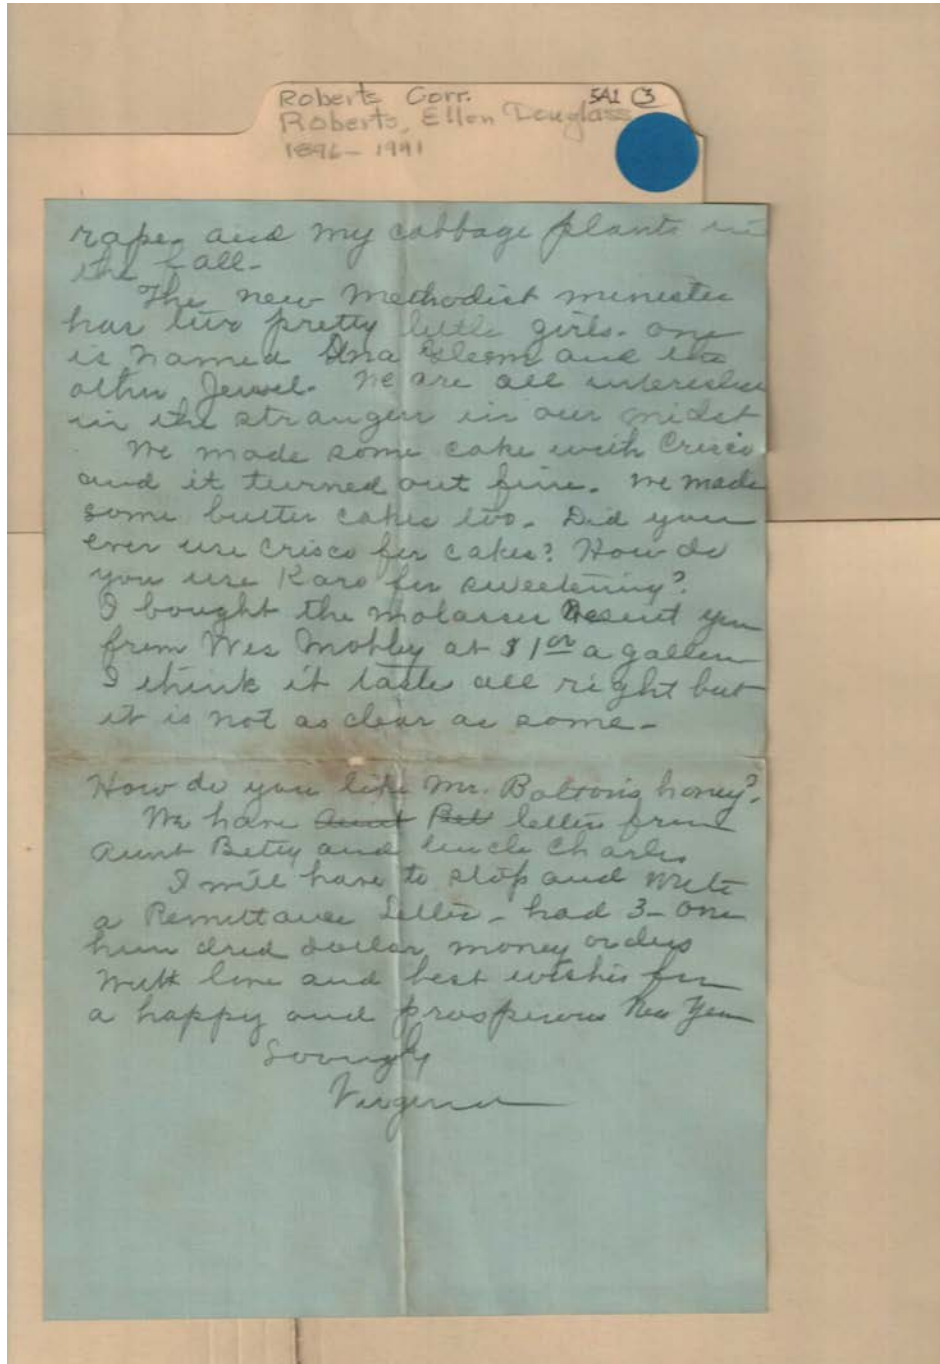 Roberts Corr. 5A1 C3
Roberts, Ellen Douglass
1896-1941
rape. and my cabbage plants in
the fall-
The new Methodist minister
has two pretty little girls. one
is named Ina and the
other Jewel. We are all interested
in the strangers in our midst
We made some cake with Crisco
and it turned out fine. We made
some butter cakes too. Did you
ever use Crisco for cakes? How do
you use Karo for sweetening?
I bought the molasses sent you
from Wes Mobley at $1.00 a gallon
I think it tastes all right but
it is not as clear as some-
How do you like Mr. Bolton's honey?
We have Aunt Bet letters from
Aunt Betty and Uncle Charles
I will have to stop and write
a Remittance Letter- had 3- one
hundred dollar money orders
With love and best wishes for
a happy and prosperous New Year
Lovingly
Virginia